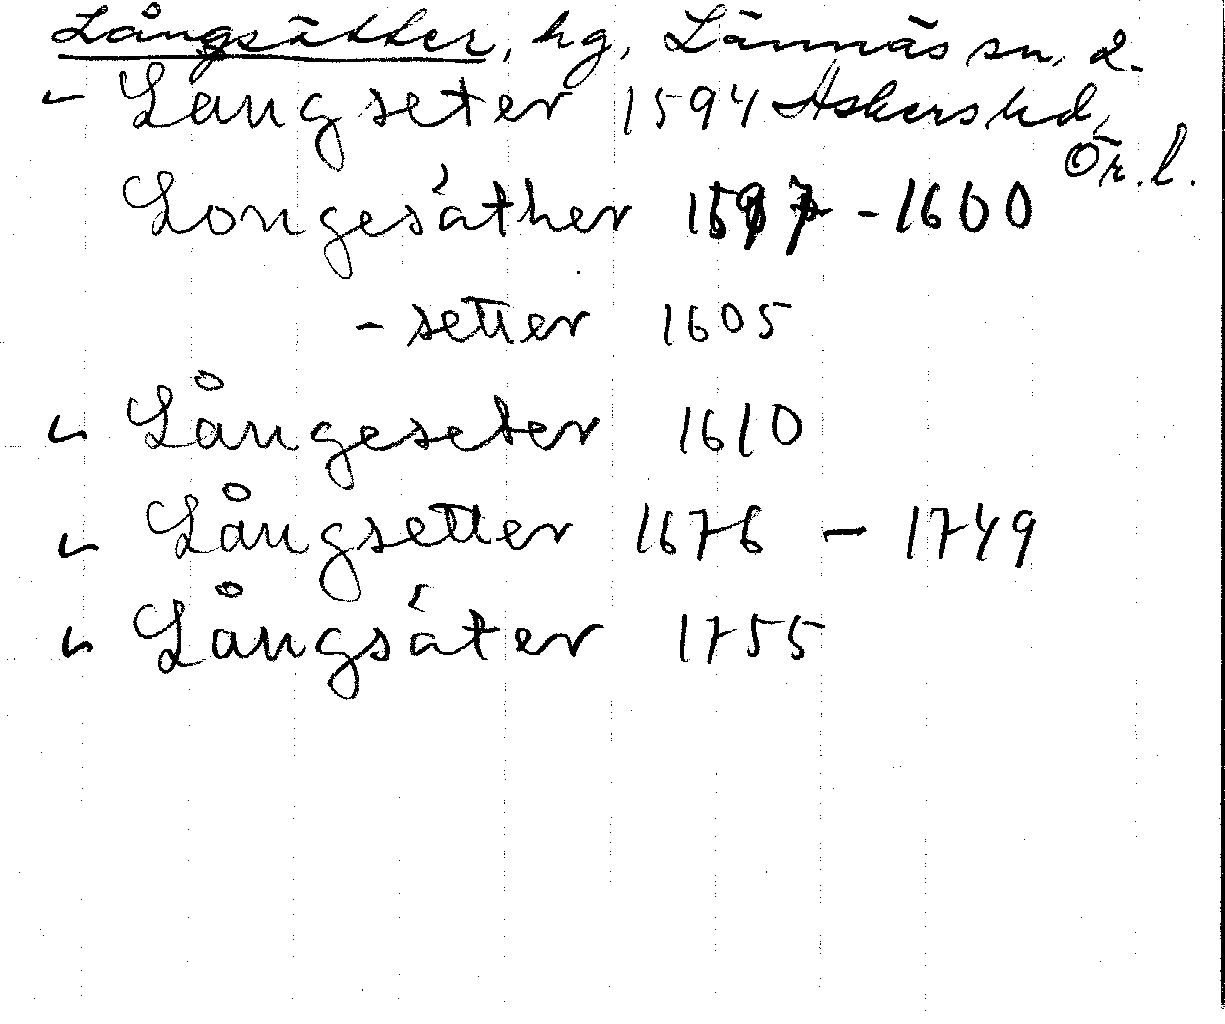 Långsätter, hg, Lännäs sn, 2.
Langseter 1594 Askers hd,
Ör. l.
Longesáther 1597 - 1600
- setter 1605
Långeseter 1610
Långsetter 1676 - 1749
Långsáter 1755